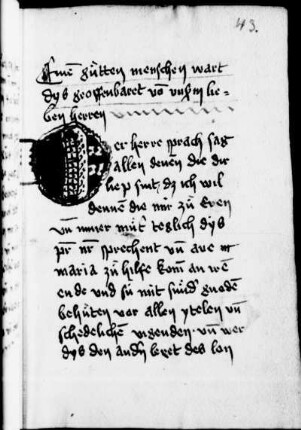 43.
Eīnē gůtten menschen wart
dys geoffenbaret vō vnßm lie-
ben herren
Der herre sprach sag
allen denen die dir
liep sint dz ich wil
dennen die mir zů eren
vn̄ miner můt̄ teglich dys
pr̄ nr̄ sprechent vn̄ ave
maria zů hilfe kom̄ an irē
ende vnd sú mit gnodē
behůten vor allen ytelen vn̄
schedelichē vn̄ wer
dys den andn̄ leret des lon